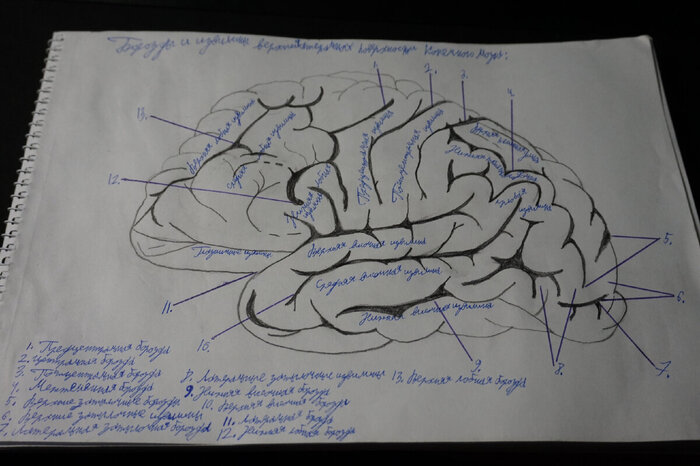 Борозды и извилины верхнелатеральной поверхности Конечного мозга:
1.
2.
3.
4.
13.
12.
11.
10.
9.
8.
7.
6.
5.
Верхняя лобная извилина
Средняя лобная извилина
Нижняя лобная извилина
Прецентральная извилина
Постцентральная извилина
Верхняя
Нижняя
Угловая извилина
извилины
Верхняя височная извилина
Средняя височная извилина
Нижняя височная извилина
1. Прецентральная борозда
2. Центральная борозда
3. Постцентральная борозда
4. борозда
5. Верхние затылочные борозды
6. Верхние затылочные извилины
7. Латеральная затылочная борозда
8. Латеральные затылочные извилины
9. Нижняя височная борозда
10. Верхняя височная борозда
11. Латеральная борозда
12. Нижняя лобная борозда
13. Верхняя лобная борозда